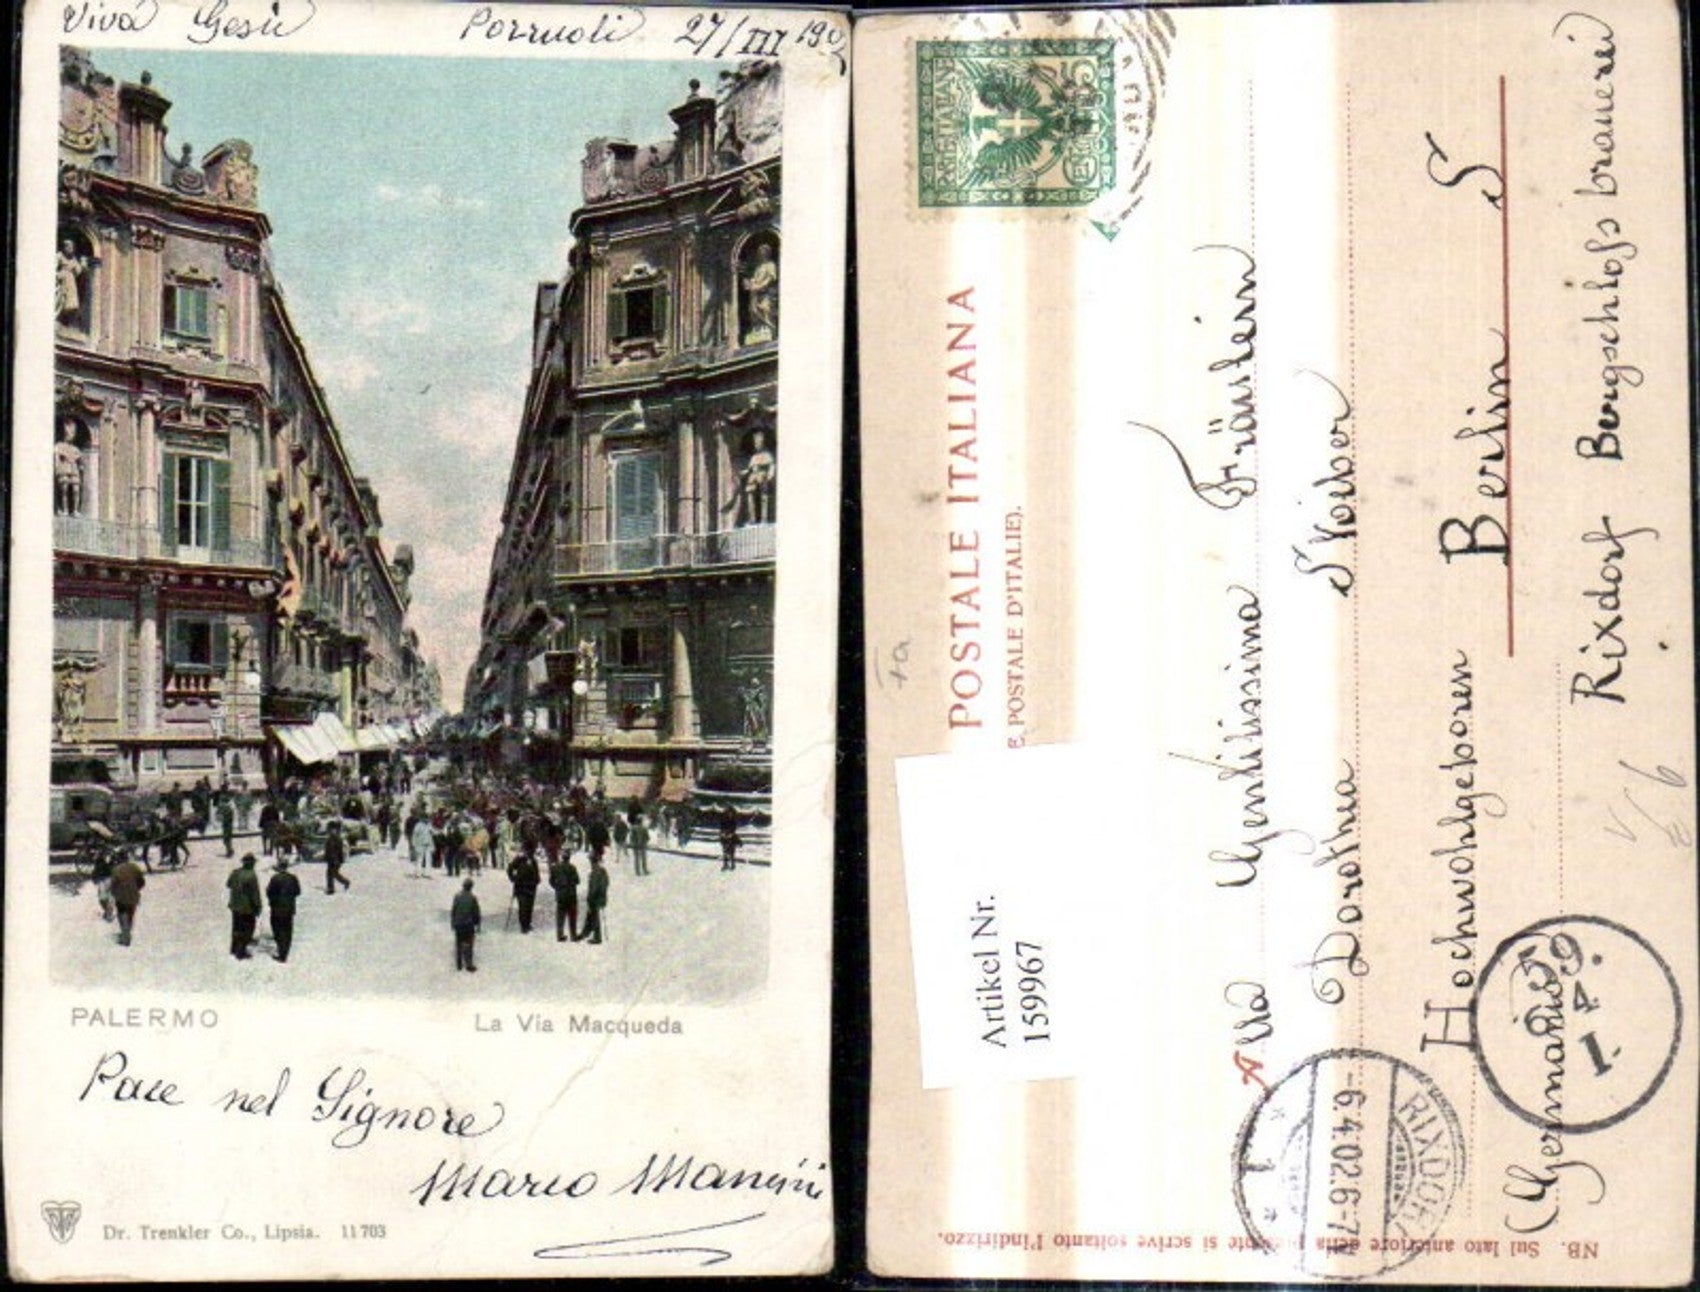 Viva Gesù Pozzuoli 27/III 190
PALERMO
La Via Macqueda
Pace nel Signore
Mario Mancini
Dr. Trenkler Co., Lipsia. 11703
POSTALE ITALIANA
E POSTALE D'ITALIE).
POSTE ITALIANE
Artikel Nr.
159967
Alla Gentilissima Fräulein
Dorothea
Hochwohlgeboren Berlin S
Rixdorf Bergschloss brauerei
(Germania)
RIXDORF
-6.4.02.6-7
NB. Sul lato anteriore della presente si scrive soltanto l'indirizzo.